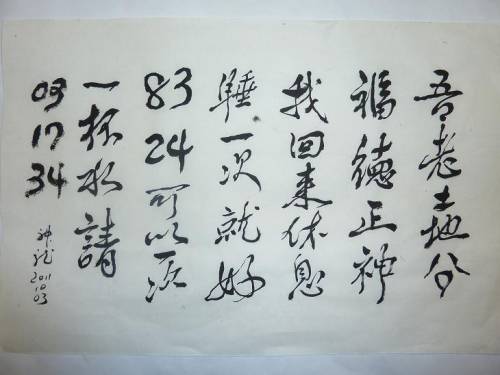 吾老土地公
福德正神
我回來休息
睡一次就好
83 24 可以一次
一杯水請
03 17 34
2011 10 03